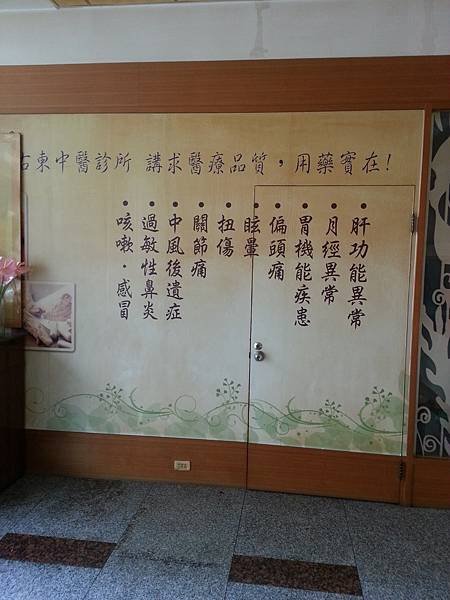 東中醫診所 講求醫療品質，用藥實在!
•肝功能異常
•月經異常
•胃機能疾患
•偏頭痛
•眩暈
•扭傷
•關節痛
•中風後遺症
•過敏性鼻炎
•咳嗽·感冒